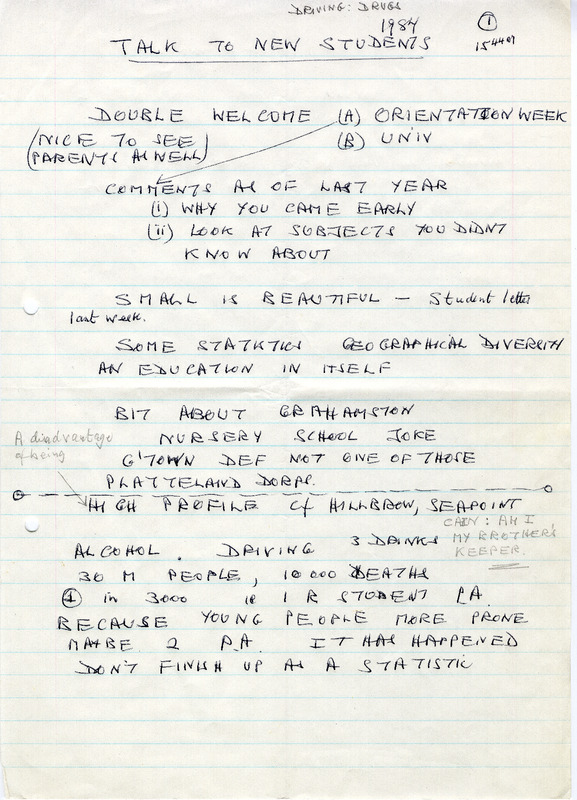 DRIVING: DRUGS
1984
①
TALK TO NEW STUDENTS
DOUBLE WELCOME (A) ORIENTATION WEEK
(NICE TO SEE (B) UNIV
PARENTS AS WELL)
COMMENTS AS OF LAST YEAR
(i) WHY YOU CAME EARLY
(ii) LOOK AT SUBJECTS YOU DIDNT
KNOW ABOUT
SMALL IS BEAUTIFUL – Student letter
last week.
SOME STATISTICS GEOGRAPHICAL DIVERSITY
AN EDUCATION IN ITSELF
BIT ABOUT GRAHAMSTON
A disadvantage
of being
NURSERY SCHOOL JOKE
G'TOWN DEF NOT ONE OF THOSE
PLATTELAND DORPS.
HIGH PROFILE cf HILLBROW, SEAPOINT
CAIN: AM I
MY BROTHER'S
KEEPER.
ALCOHOL. DRIVING 3 DRINKS
30 M PEOPLE, 10 000 DEATHS
① in 3000 ie 1 R STUDENT PA
BECAUSE YOUNG PEOPLE MORE PRONE
MAYBE 2 P.A. IT HAS HAPPENED
DON'T FINISH UP AS A STATISTIC